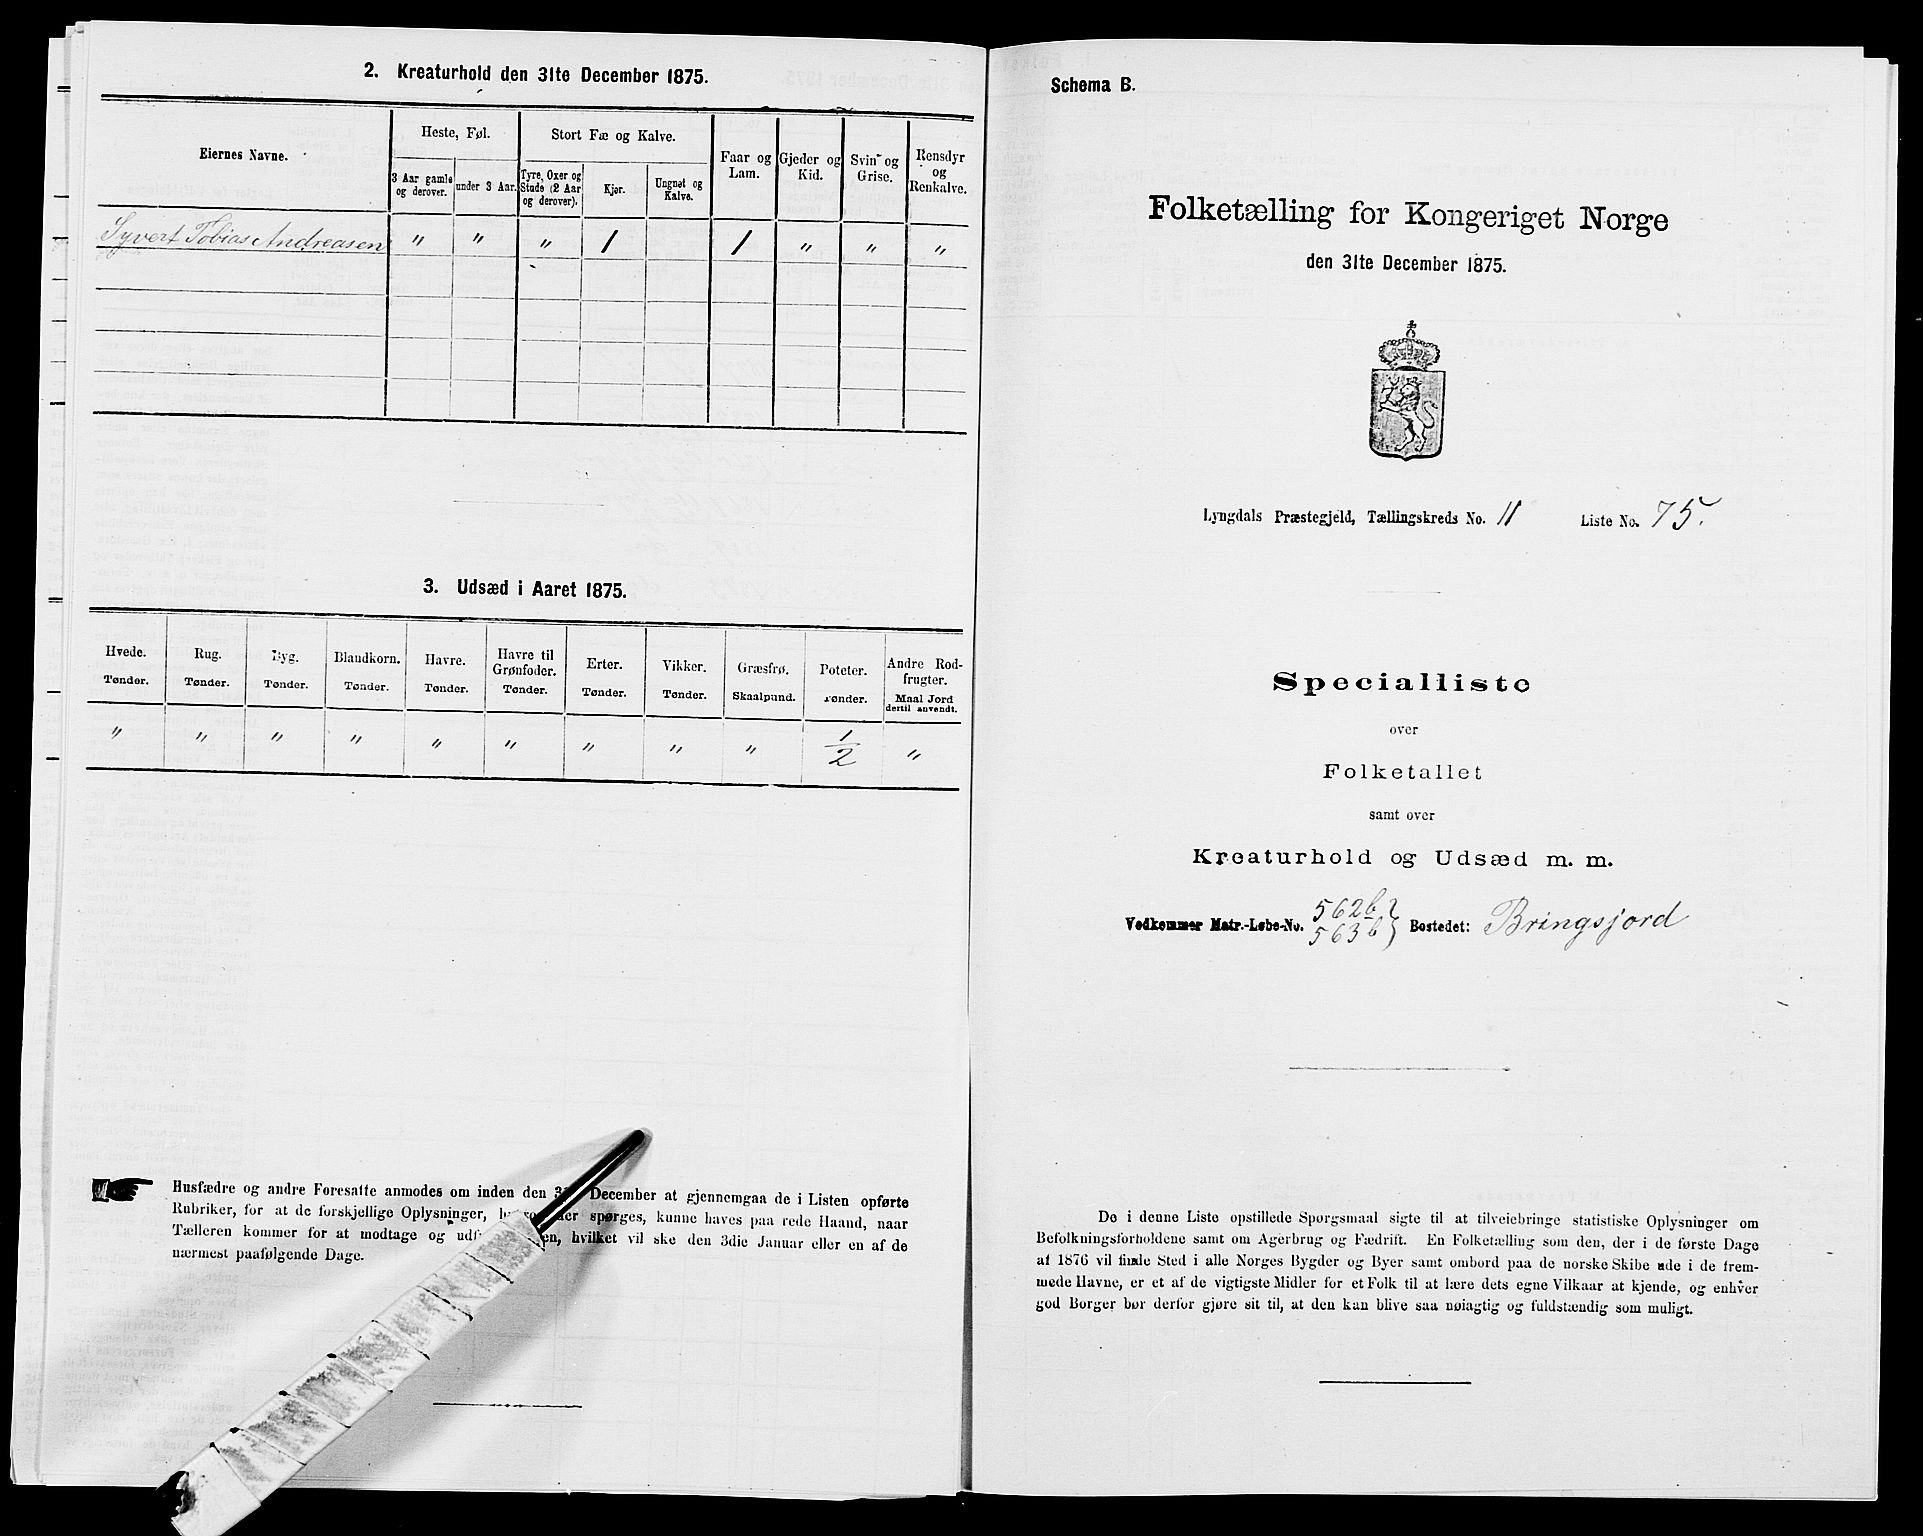 2. Kreaturhold den 31te December 1875.
Eiernes Navne.
Heste, Føl.
Stort Fæ og Kalve.
Faar og Lam.
Gjeder og Kid.
Svin og Grise.
Rensdyr og Renkalve.
3 Aar gamle og derover.
under 3 Aar.
Tyre, Oxer og Stude (2 Aar og derover).
Kjør.
Ungnøt og Kalve.
Syvert Tobias Andreasen " " " 1 1 " " "
3. Udsæd i Aaret 1875.
Hvede. Rug. Byg. Blandkorn. Havre. Havre til Grønfoder. Erter. Vikker. Græsfrø. Poteter. Andre Rodfrugter.
Tønder. Tønder. Tønder. Tønder. Tønder. Tønder. Tønder. Tønder. Skaalpund. Tønder. Maal Jord dertil anvendt.
" " " " " " " " " 1/2 "
Husfædre og andre Foresatte anmodes om inden den December at gjennemgaa de i Listen opførte
Rubriker, for at de forskjellige Oplysninger, spørges, kunne haves paa rede Haand, naar
Tælleren kommer for at modtage og hvilket vil ske den 3die Januar eller en af de
nærmest paafølgende Dage.
Schema B.
Folketælling for Kongeriget Norge
den 31te December 1875.
Lyngdals Præstegjeld, Tællingskreds No. 11 Liste No. 75.
Specialliste
over
Folketallet
samt over
Kreaturhold og Udsæd m. m.
Vedkommer Matr.-Løbe-No. 562b 563b } Bostedet: Bringsjord
De i denne Liste opstillede Spørgsmaal sigte til at tilveiebringe statistiske Oplysninger om
Befolkningsforholdene samt om Agerbrug og Fædrift. En Folketælling som den, der i de første Dage
af 1876 vil finde Sted i alle Norges Bygder og Byer samt ombord paa de norske Skibe ude i de frem-
mede Havne, er et af de vigtigste Midler for et Folk til at lære dets egne Vilkaar at kjende, og enhver
god Borger bør derfor gjøre sit til, at den kan blive saa nøiagtig og fuldstændig som muligt.